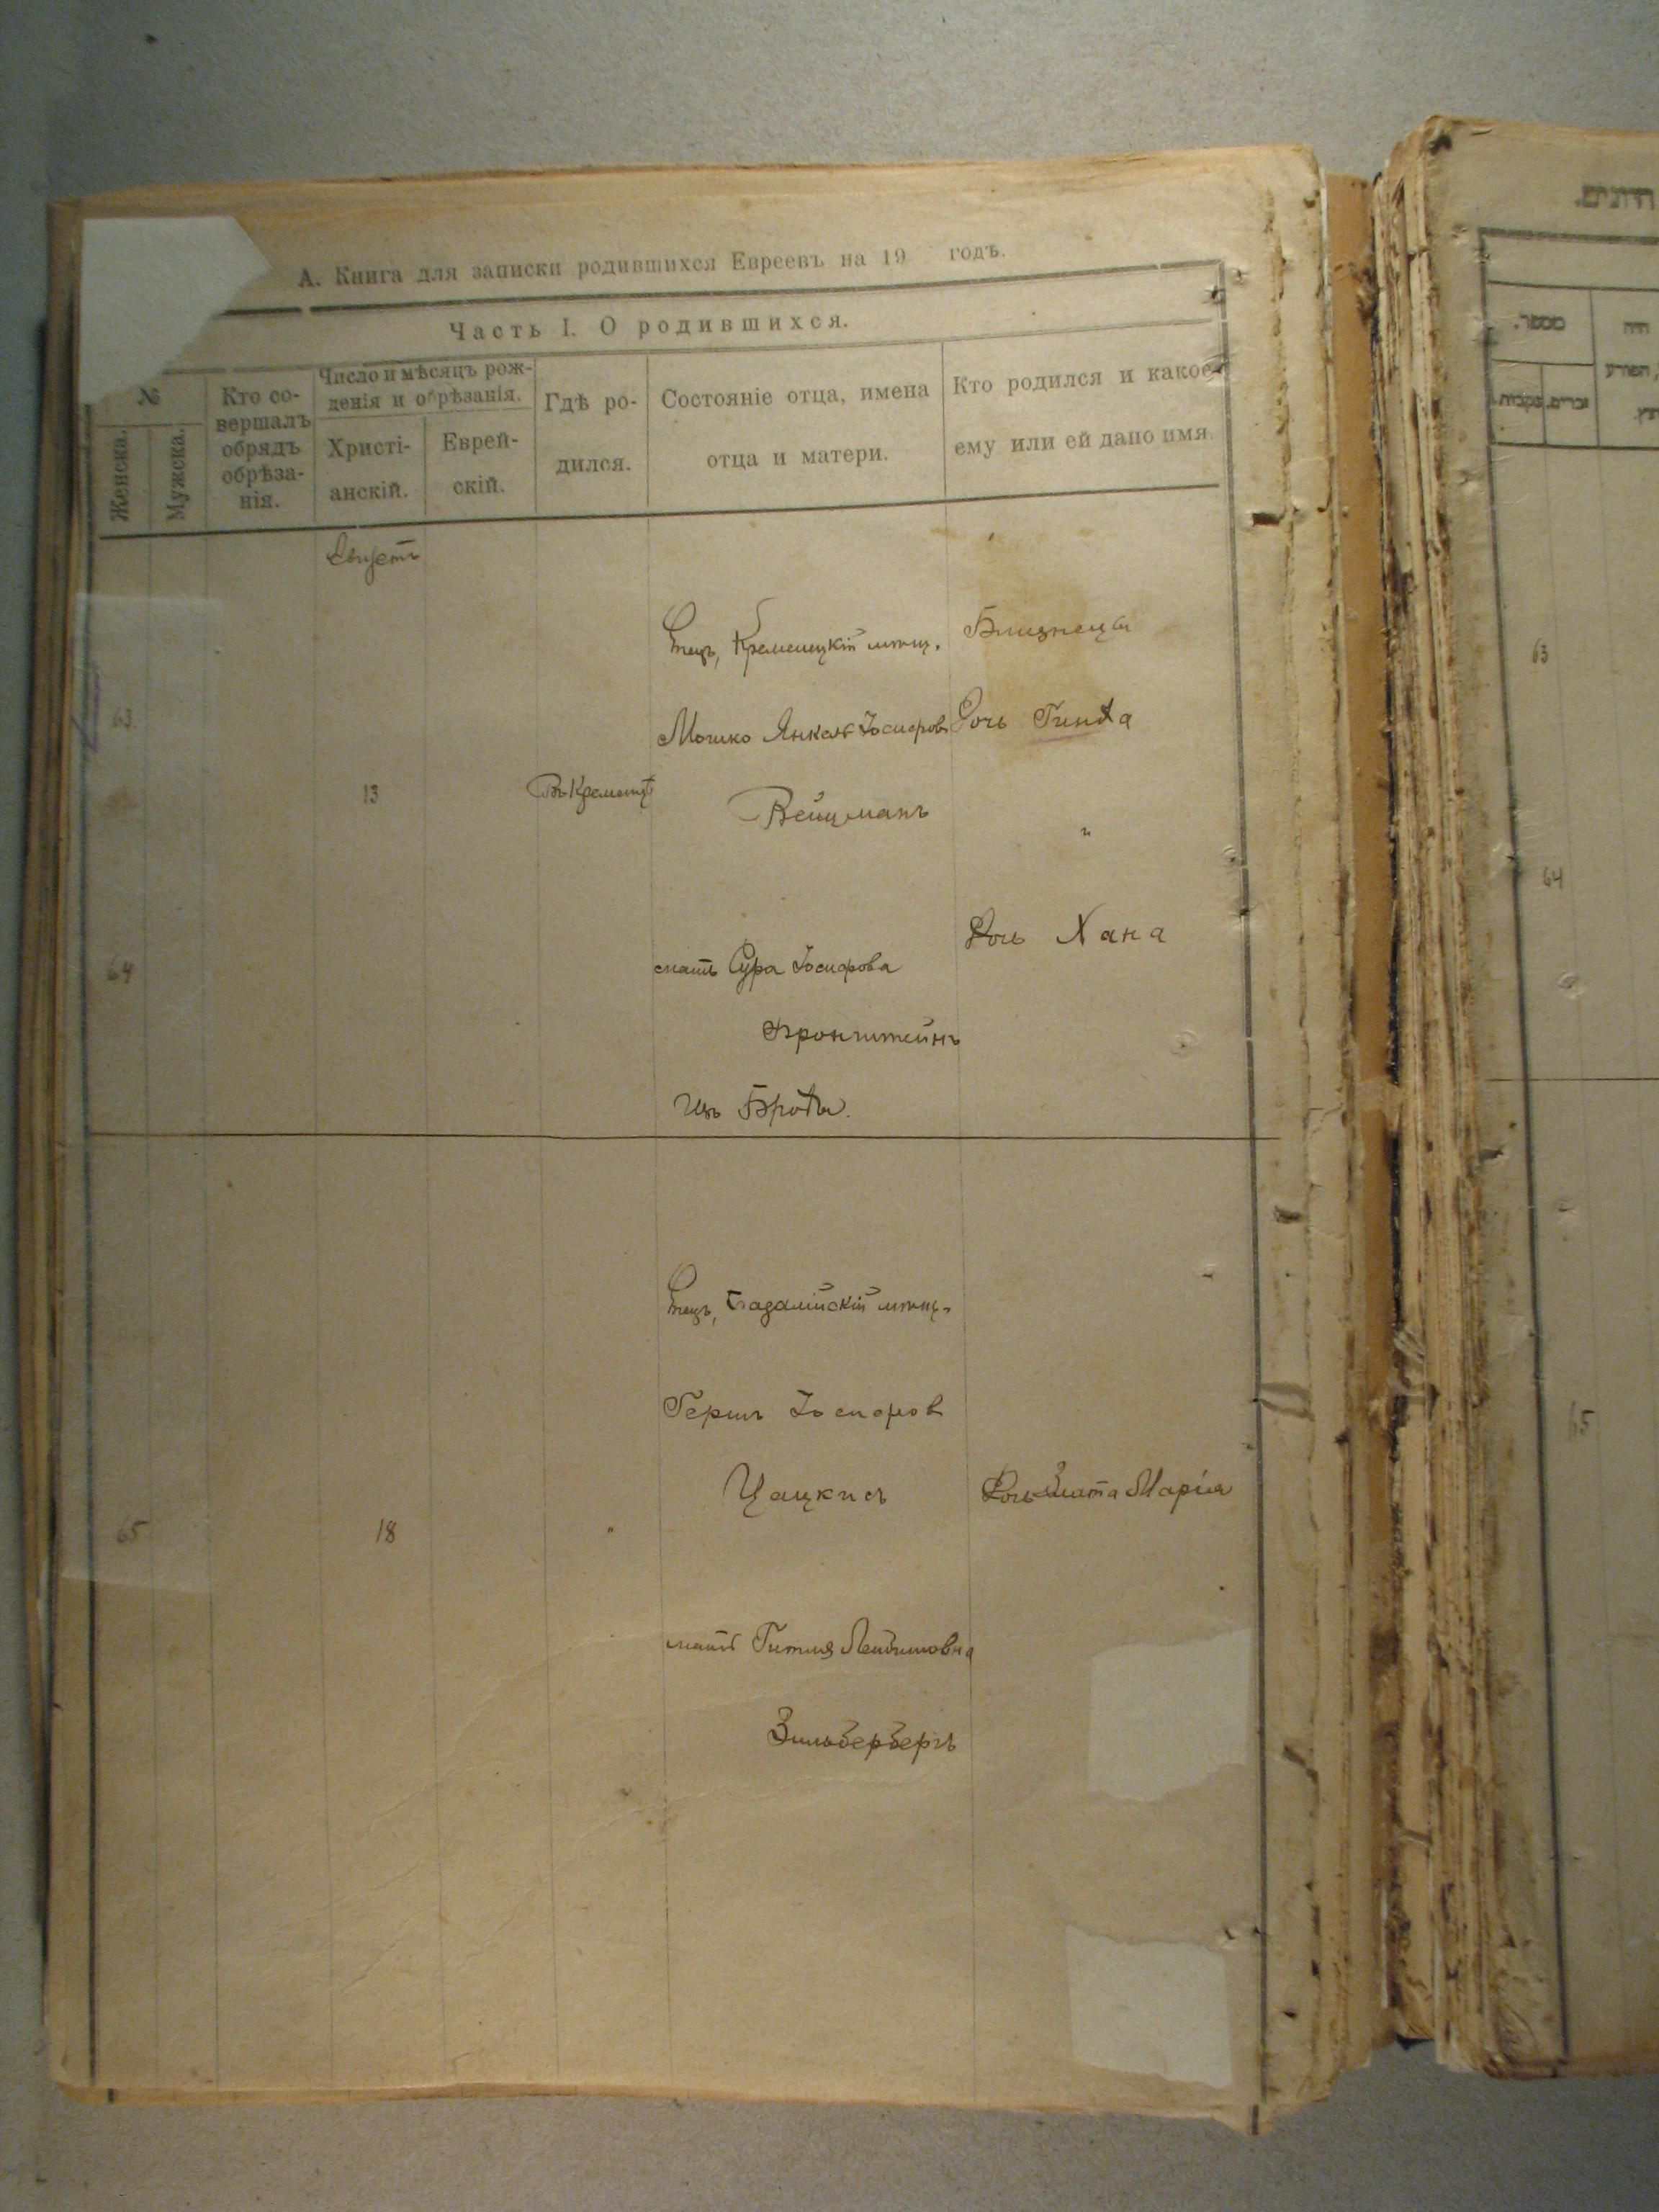 А. Книга для записки родившихся Евреевъ на 19 годъ.
Часть I. О родившихся.
№
Женска.
Мужска.
Кто со-
вершалъ
обрядъ
обрѣза-
нія.
Число и мѣсяцъ рож-
денія и обрѣзанія.
Христі-
анскій.
Еврей-
скій.
Гдѣ ро-
дился.
Состояніе отца, имена
отца и матери.
Кто родился и какое
ему или ей дано имя.
Августъ
63
64
13
Въ Кременцѣ
Отецъ, Кременецкій мѣщ.
Мошко Янкель Іосифовъ
Вейцманъ
мать Сура Іосифова
Бронштейнъ
Изъ Броды.
Близнецы
Дочь Гинда
"
Дочь Хана
65
18
"
Отецъ, Базалійскій мѣщ.
Гершъ Іосифов
Цацкисъ
мать Гитля Лейбишовна
Зильбербергъ
Дочь Злата Марія
63
64
65
חיונים.
מספר.
זכרים.
נקבות.